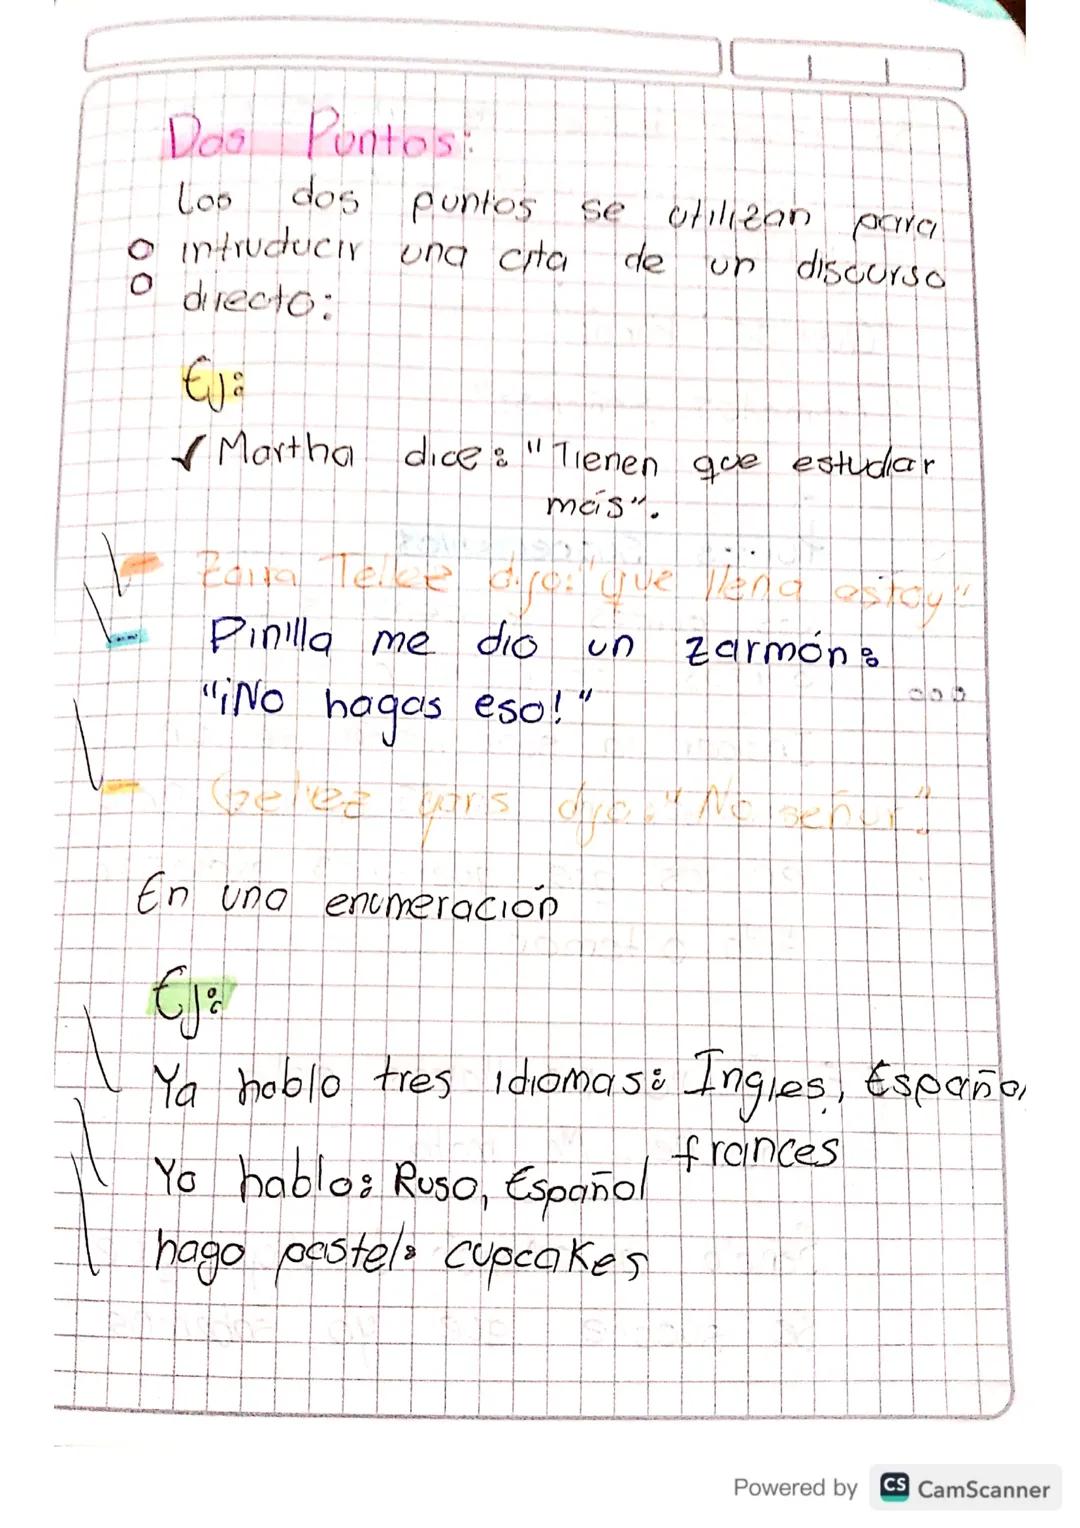 Dos Puntos:
Los dos puntos se utilizan para
intruducir una cita de un discurso
directo:
Ej:
✓ Martha dice: "Tienen que estudiar
más".
dijo: "que llena estoy"
Pinilla me dio un zarmón:
"¡No hagas eso!"
dijo: "No señor".
En una enumeración
Ej:
Ya hablo tres idiomas: Ingles, Español,
frances
Yo hablo: Ruso, Español
hago pastel: cupcakes
Powered by CS CamScanner